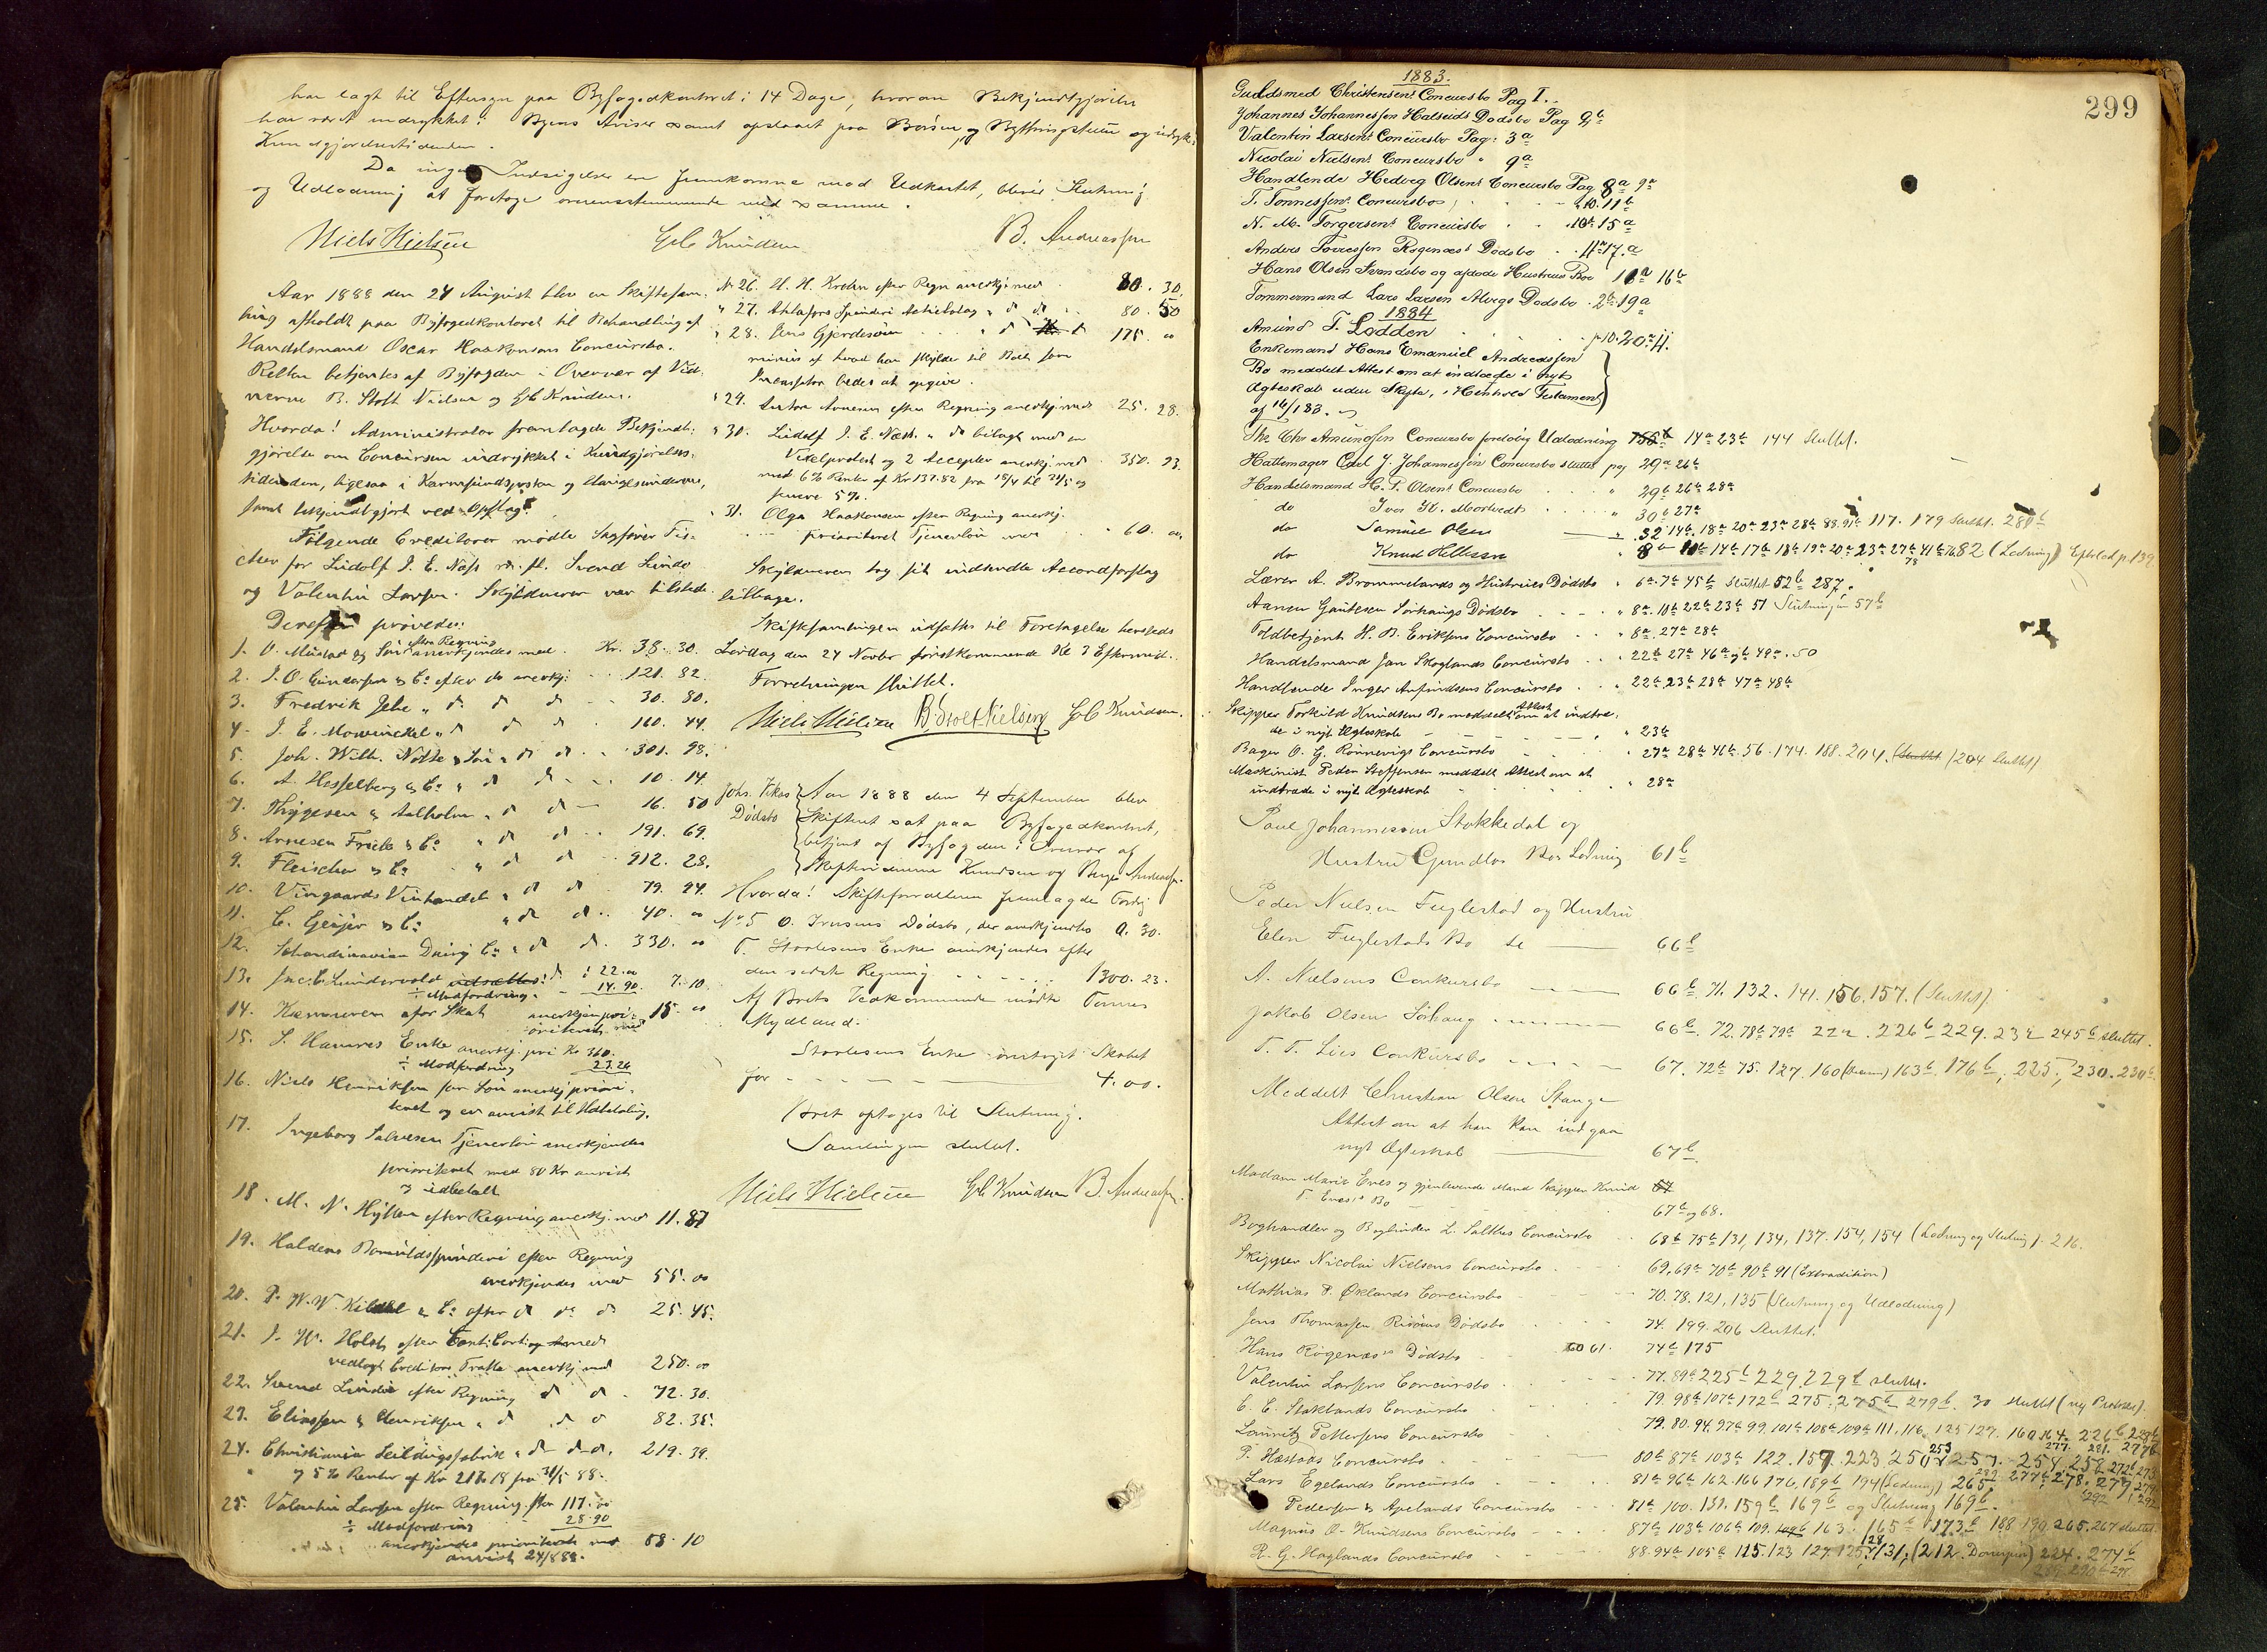 har lagt til Eftersyn paa Byfogedkontoret i 14 Dage, hvorom Bekjendtgjørelse
har været indrykket i Byens Aviser samt opslaaet paa Børsen og Bythingstuen og indryk:
Kundgjørelsestidenden.
Da ingen Indsigelser er fremkomne mod Udkastet, blev Slutning
og Udlodning at foretage overensstemmende med samme.
Niels Nielsen Gb Knudsen B. Andreassen
Aar 1888 den 24 August blev en Skiftesam:
ling afholdt paa Byfogedkontoret til Behandling af
Handelsmand Oscar Haakonsens Concursbo.
Retten betjentes af Byfogden i Overvær af Vid:
nerne B. Stolt Nielsen og Gb Knudsen.
Hvorda! Administrator fremlagde Bekjendt:
gjørelse om Concursen indrykket i Kundgjørelses:
tidenden, ligesaa i Karmsundsposten og Haugesunderen,
samt bekjendtgjort ved Opslag.
Følgende Creditorer mødte Sagfører Fis:
cher for Ludolf J. E. Næss Svend Lunde
og Valentin Larsen. Skyldneren var tilstede.
Derefter prøvedes:
1. O. Mustad & Søn efter Regning anerkjendes med Kr. 38. 30.
2. J. O. Gundersen & Co efter do anerkj: 121. 82.
3. Fredrik Jebe " do do do 30. 80.
4. J. E. Mowinckel " do do do 160. 44.
5. Joh. Wilh. Nolte & Søn " do do 301. 98.
6. A. Hesselberg & Co " do do 10. 14.
7. Thygesen & Aalholm " do do 16. 50
8. Arnesen Frich & Co " do do 191. 69.
9. Fleischer & Co " do do 912. 28.
10. Vingaards Vinhandel " do do 79. 24.
11. C. Geijer & Co " do do 40. 00
12. Skandinavian Dairy Co " do do. 330. 00
13. Jac. C. Lundevold udsættes: do : 22.00
÷ Modfordring 14.90. 7.10.
14. Kæmneren for Skat anerkj. pri:
oriteret med 15. 00
15. S. Hauges Enke anerkj. pri Kr 360.
÷ Modfordring 23.26
16. Niels Henriksen for Løn anerkj priori:
teret og er anvist til Udbetaling.
17. Ingeborg Salvesen Tjenerløn anerkjendes
prioriteret med 80 Kr anvist
og udbetalt
18. M. N. Hytten efter Regning anerkj. med 11. 87
19. Haldens Bomuldsspinderi efter Regning
anerkjendes med 55. 00
20. P. W. W. Kildal & Co efter do do do 25. 45.
21. J. W. Holst efter Conti Cort. med
vedlagt Creditors Tratte anerkj med 250. 00
22. Svend Lunde efter Regning do do 72. 30.
23. Eliassen & Henriksen " do do do 82. 35.
24. Christiania Seildugsfabrik " do do. 219. 39.
og 5% Renter af Kr 2170 18 fra 31/5 88.
25. Valentin Larsen efter Regning stor 117.00
÷ Modfordring 28.90
anerkjendes prioriteret med 88. 10
anvist 24/8 88.
No 26. H. H. Krohn efter Regn anerkj. med 80. 30.
" 27. Ahlafors Spinderi Actiebolag " do do 80. 50
" 28. Jens Gjerdesøen " do do 175. 00
minus af hvad han skylder til Boet som
Incassator bedes at opgive.
" 29. Anton Arnesen efter Regning anerkj. med 25. 28.
" 30. Ludolf J. E. Næss. " do bilagt med en
Vexelprotest og 2 Accepter anerkj. med 350. 93.
med 6% Renter af Kr 137.82 fra 18/4 til 31/5 og
senere 5%.
" 31. Olga Haakonsen efter Regning anerkj.
prioriteret Tjenerløn med 60. 00
Skyldneren tog sit indsendte Accordforslag
tilbage.
Skiftesamlingen udsattes til Foretagelse hersteds
Lørdag den 24 Novbr førstkommende Kl 3 Eftermid.
Forretningen sluttet.
Niels Nielsen B. Stolt Nielsen Gb Knudsen.
Johs. Vikes
Dødsbo
Aar 1888 den 4 September blev
Skifteret sat paa Byfogedkontoret,
betjent af Byfogden i Overvær af
Skiftevidnerne Knudsen og Berge Andreassen.
Hvorda! Skifteforvalteren fremlagde Fordg
No 5 O. Iversens Dødsbo, der anerkjendtes 9. 30.
T. Staalesens Enke anerkjendes efter
den sidste Regning 1300. 23.
Af Boets Vedkommende mødte Tønnes
Mydland.
Staalesens Enke
for 4.00.
Boet optages til Slutning.
Samlingen sluttet.
Niels Nielsen Gb Knudsen B. Andreassen.
299
1883.
Guldsmed Christensens Concursbo Pag 1.
Johannes Johannessen Halseids Dødsbo Pag 2b
Valentin Larsens Concursbo Pag: 3a
Nicolai Nielsens Concursbo " 9a
Handlende Hedvig Olsens Concursbo Pag 8a 9a
T. Tønnessens Concursbo 10. 11b
N. M. Torgersens Concursbo 10b 15a
Anders Torressen Røgenæss Dødsbo 11a 17.a
Hans Olsen Svendsbø og afdøde Hustrues Bo 11a 16b
Tømmermand Lars Larsen Alvegs Dødsbo 2b 19a
1884
Amund T. Lodden p 10. 20a 4.
Enkemand Hans Emanuel Andreassen
Bo meddelt Attest om at indtræde i nyt
Ægteskab uden Skifte, i Henhold Testament
af 16/1 83.
Chr Amundsen Concursbo foreløbig Udlodning 14a 23b 144 Sluttet.
Hattemager Carl J. Johannessen Concursbo sluttet pag 29a 26b
Handelsmand H. P. Olsens Concursbo " 29b 26b 28a
do Iver M. Mortvedt " 30b 27a
do Samuel Olsen 32. 14b. 18a 20a 23a 28b 88. 91b 117. 179 sluttet. 280b
do Knud Hellesen " 8b 10b 14b 17b 18b 19a 20a 23a 27b 41b 76 82 (Lodning) Efterlod p. 139.
Lærer A. Brommelands og Hustrues Dødsbo " 6a. 7b 45b sluttet 52b 287.
Aanen Gautesen Sørhaugs Dødsbo " 8a. 10b 22b 23b 51 Slutningen 57b
Toldbetjent H. B. Eriksens Concursbo " 8a. 27a 28b
Handelsmand Jan Skoglands Concursbo 22b 27a 46a og b 49a. 50
Handlende Inger Anfindsens Concursbo 22b 23b 28b 47a 48b
Skipper Torkild Knudsens Bo meddelt Attest om at indtræ:
de i nyt Ægteskab " 23b
Bager O. G. Rønnevigs Concursbo 27a 28b 41b. 56. 174. 188. 204. (sluttet) (204 sluttet)
Maskinist Peder Steffensen meddelt Attest om at
indtræde i nyt Ægteskab " 28a
Paul Johannessen Stakkedal og
Hustru Gundlas Bos Lodning 61b
Peder Nielsen Fuglestad og Hustru
Elen Fuglestads Bo se 66b
A. Nielsens Conkursbo 66b 71. 132. 141. 156. 157. (sluttet).
Jakob Olsen Sørhaug 66b. 72. 78b 79b 222. 226b 229. 232 245b sluttet.
T. T. Lies Conkursbo 67. 72b 75. 127. 160 163b. 176b, 225, 230. 230b
Meddelt Christian Olsen Stange
Attest om at han kan indgaa
nyt Ægteskab 67b
Madam Marie Eves og gjenlevende Mand Skipper Knud
T. Eves's Bo 67b og 68.
Boghandler og Bogbinder L. Salthes Concursbo 68b 75b 131, 134, 137. 154, 154 (Lodning og Slutning). 216.
Skipper Nicolai Nielsens Concursbo 69, 69b 70b 90b 91 (Extradition)
Mathias P. Øklands Concursbo 70. 78. 121, 135 (Slutning og Udlodning)
Jens Thomassen Risøens Dødsbo 74. 199. 206 Sluttet.
Hans Røgenæss Dødsbo 60 61. 74b 175
Valentin Larsens Concursbo 77. 89b 225b 229. 229b sluttet.
E. E. Staklands Concursbo 79. 98b 107a 172b 275. 275b 279b. 30 sluttet (ny Protokol).
Lauritz Pettersens Concursbo 79. 80. 94. 97b 99. 101b 108b 109b 111. 116. 125 127. 160 164. 226b
P. Hæstads Concursbo 80b 87b 103b 122. 157. 223. 250 253 257.
Lars Egelands Concursbo 81a 96b 162. 166 176, 189b 194 (Lodning) 265.
Pedersen & Apelands Concursbo 81b 100. 131. 159b 169b og Slutning 169b.
Magnus O. Knudsens Concursbo 87b 103b 106b 109. 163. 165b 173b 188 190 265. 267 sluttet.
R. G. Haglands Concursbo 88. 94b 105b 115. 123 127. 128 131, (212. ) 224. 274b